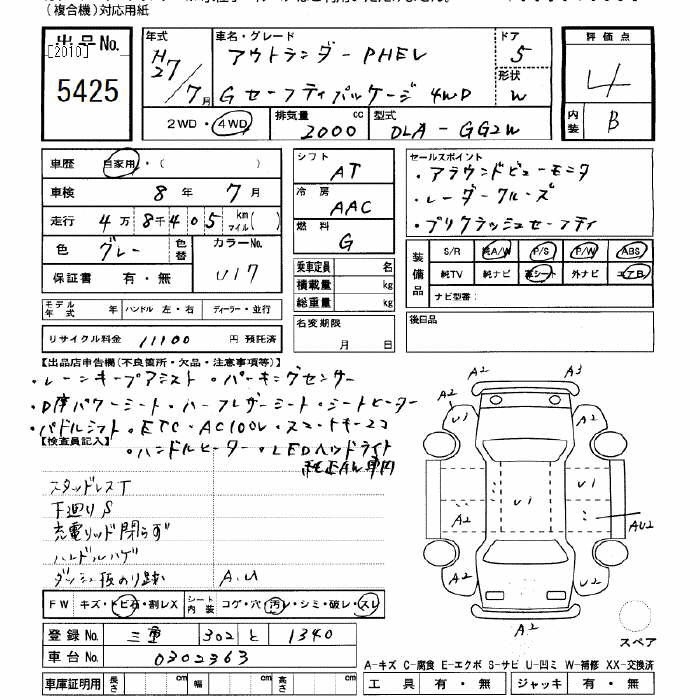 （複合機）対応用紙
出品No.
[2010]
5425
年式 H27/7月
車名・グレード
アウトランダーPHEV
Gセーフティパッケージ 4WD
ドア 5
形状 W
2WD・4WD
排気量 2000 cc
型式 DLA-GG2W
評価点 4
内装 B
車歴 自家用・（ ）
車検 8年 7月
走行 4万8千405 km マイル( )
色 グレー 色替
カラーNo. U17
保証書 有・無
シフト AT
冷房 AAC
燃料 G
乗車定員 名
積載量 kg
総重量 kg
セールスポイント
・アラウンドビューモニタ
・レーダークルーズ
・プリクラッシュセーフティ
装備品
S/R 純A/W P/S P/W ABS
純TV 純ナビ 革シート 外ナビ エアB
ナビ型番：
モデル年式 年 ハンドル 左・右 ディーラー・並行
リサイクル料金 11100 円 預託済
名変期限 月 日
後日品
【出品店申告欄(不良箇所・欠品・注意事項等)】
・レーンキープアシスト ・パーキングセンサー
・D席パワーシート・ハーフレザーシート・シートヒーター
・パドルシフト・ETC・AC100V・スマートキー2コ
・ハンドルヒーター・LEDヘッドライト
【検査員記入】
スタッドレスT
下廻りS
充電リッド閉らず
ハンドルハゲ
ダッシュ板のり跡 A.U
FW キズ・トビ石・割レX
シート内装 コゲ・穴・汚レ・シミ・破レ・スレ
登録No. 三重 302 と 1340
車台No. 0302363
車庫証明用 長さ cm 幅 cm 高さ cm
A2 A3
U1 A2
A2 U1 U1
AU2
A2 U2
A2
スペア
A-キズ C-腐食 E-エクボ S-サビ U-凹ミ W-補修 XX-交換済
工具 有・無 ジャッキ 有・無